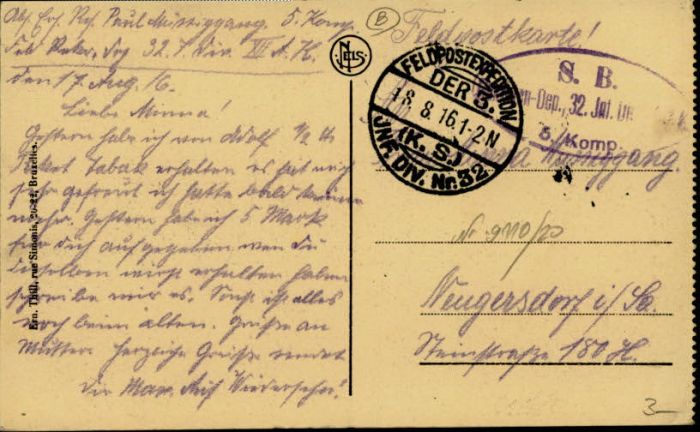 Abs. Ers. Res. Paul Müssiggang. 5. Komp.
Feld Rekr. Dep 32. I. Div. XII A. K.
Feldpostkarte!
B
NELS
den 17. Aug. 16.
Liebe Minna!
Gestern hab ich von Adolf 1/2
Paket Tabak erhalten es hat mich
sehr gefreut ich hatte bald keinen
mehr. Gestern hab ich 5 Mark
für dich aufgegeben wen du
dieselben wirst erhalten haben
schreibe mir es. Sonst ist alles
noch beim alten. Grüße an
Mutter. Herzliche Grüße sendet
dir Max. Auf Wiedersehn!
Ern. Thill, rue Simonis, 20-22, Bruxelles.
FELDPOSTEXPEDITION
DER 3.
18. 8. 16. 1-2 N
(K. S.)
INF. DIV. Nr. 32
S. B.
-Dep., 32. Inf.
5. Komp.
Minna Müssiggang.
Nr
Neugersdorf i/Sa.
Steinstraße 180 H.
3-